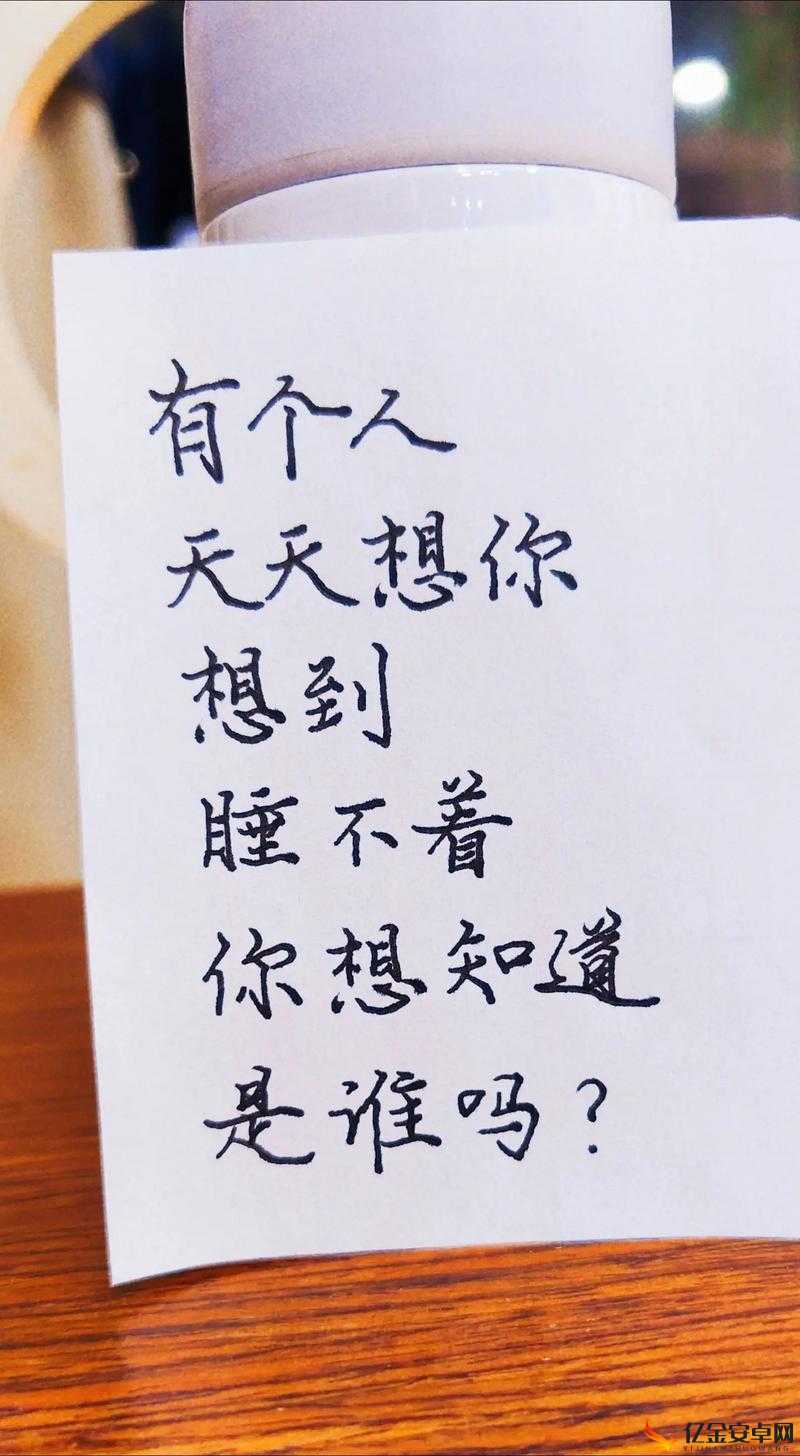 有个人
天天想你
想到
睡不着
你想知道
是谁吗?
亿金安卓网
YIJINANZHUOWANG